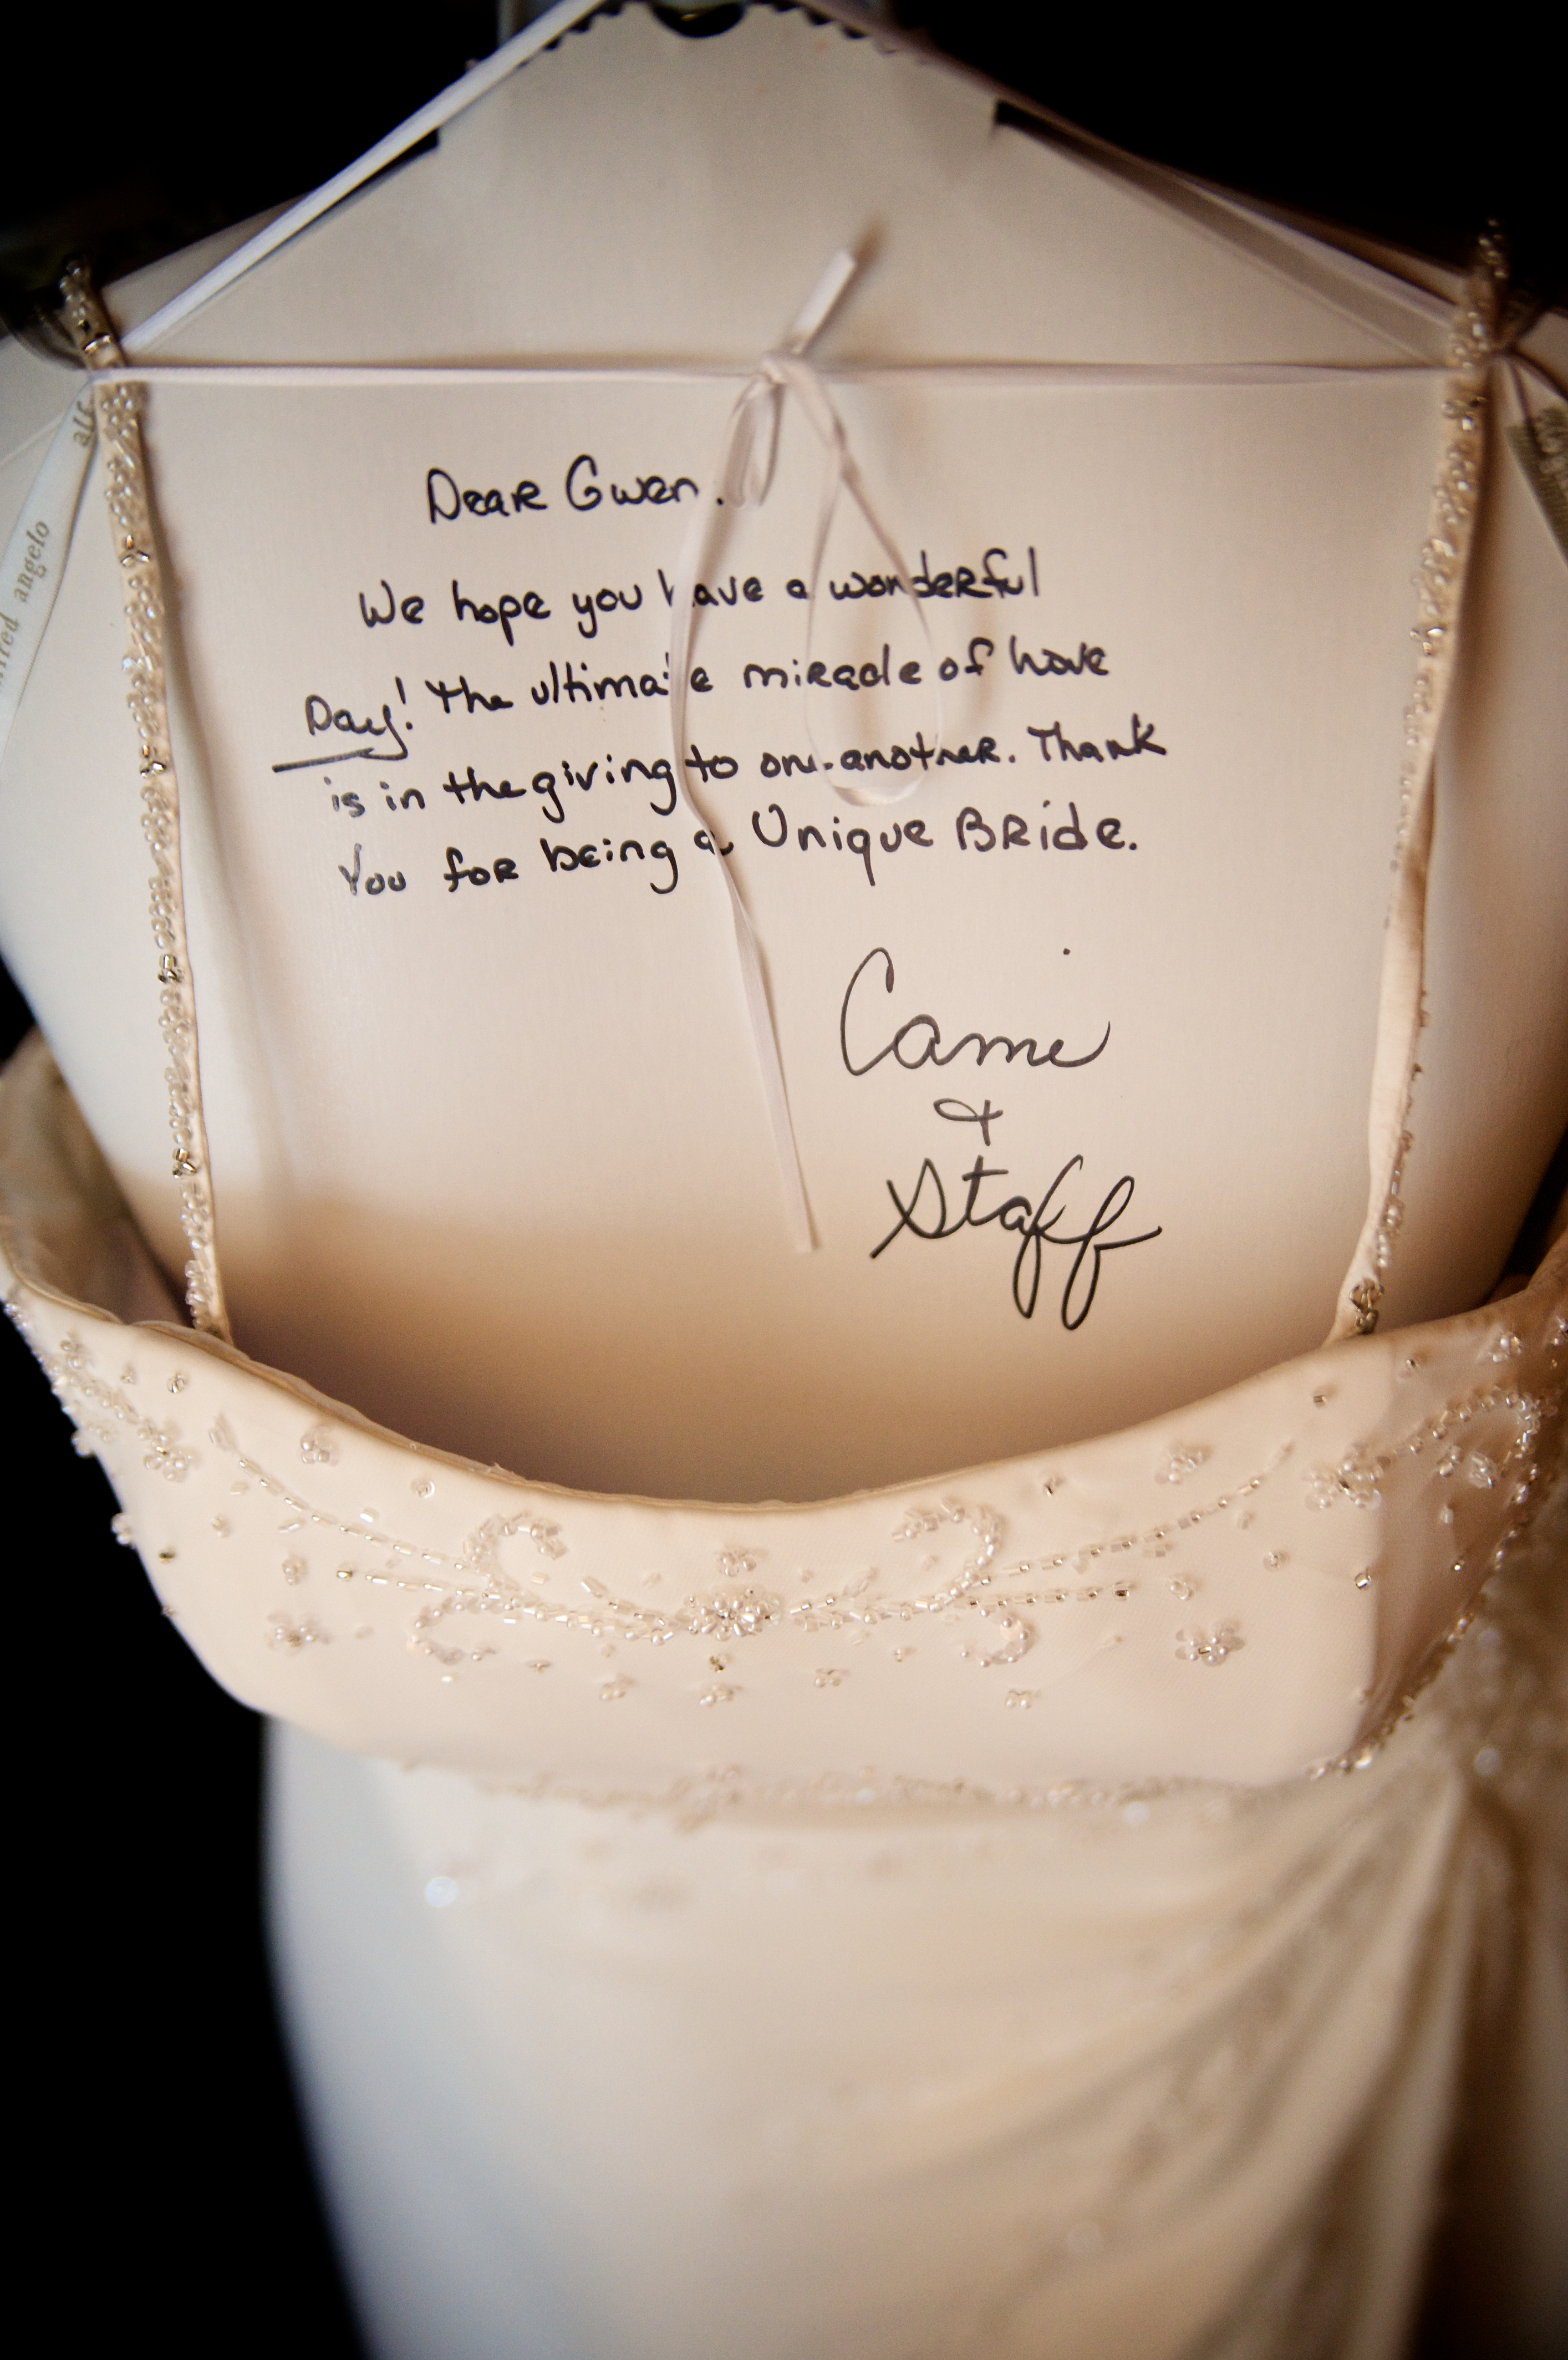 Dear Gwen.
We hope you have a wonderful
Day! The ultimate miracle of love
is in the giving to one another. Thank
You for being a Unique Bride.
Cami
&
Staff
alf
angelo